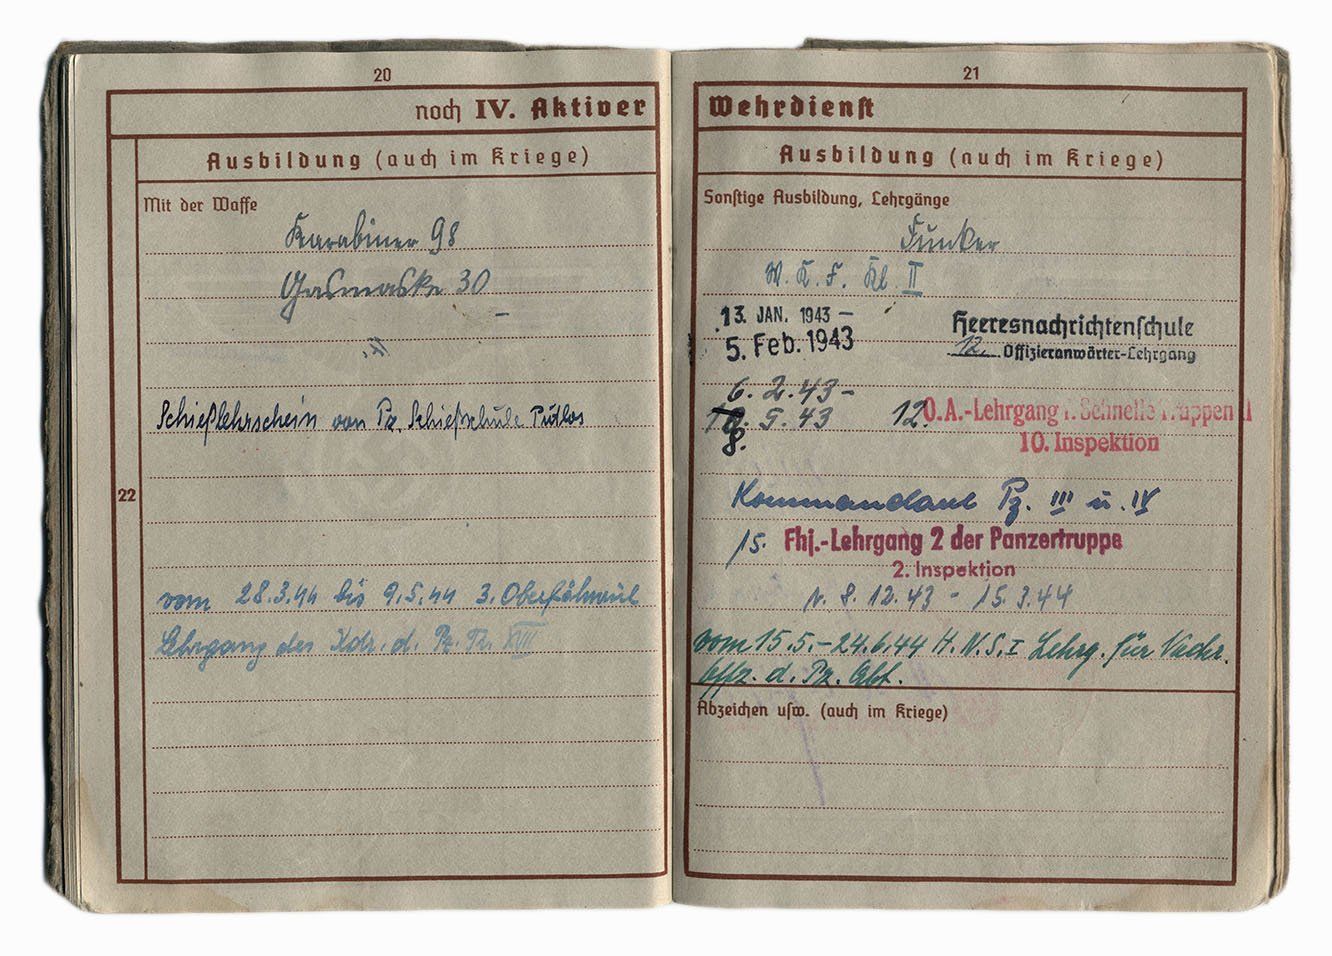 20
noch IV. Aktiver
Ausbildung (auch im Kriege)
Mit der Waffe
Karabiner 98
Gasmaske 30
Schießlehrschein von Pz. Schießschule Putlos
22
vom 28.3.44 bis 9.5.44 3. Oberfähnrich
Lehrgang des Kdr. d. Pz. Tr. XVII
21
Wehrdienst
Ausbildung (auch im Kriege)
Sonstige Ausbildung, Lehrgänge
Funker
W. K. F. Kl. II
13. JAN. 1943 –
5. Feb. 1943
Heeresnachrichtenschule
12. Offizieranwärter-Lehrgang
6. 2. 43 –
8. 5. 43 12. O.A.-Lehrgang f. Schnelle Truppen II
10. Inspektion
Kommandant Pz. III u. IV
15. Fhj.-Lehrgang 2 der Panzertruppe
2. Inspektion
v. 8. 12. 43 - 15. 3. 44
vom 15.5. – 24.6.44 H.N.S. I Lehrg. für Nachr.
Offz. d. Pz. Abt.
Abzeichen usw. (auch im Kriege)